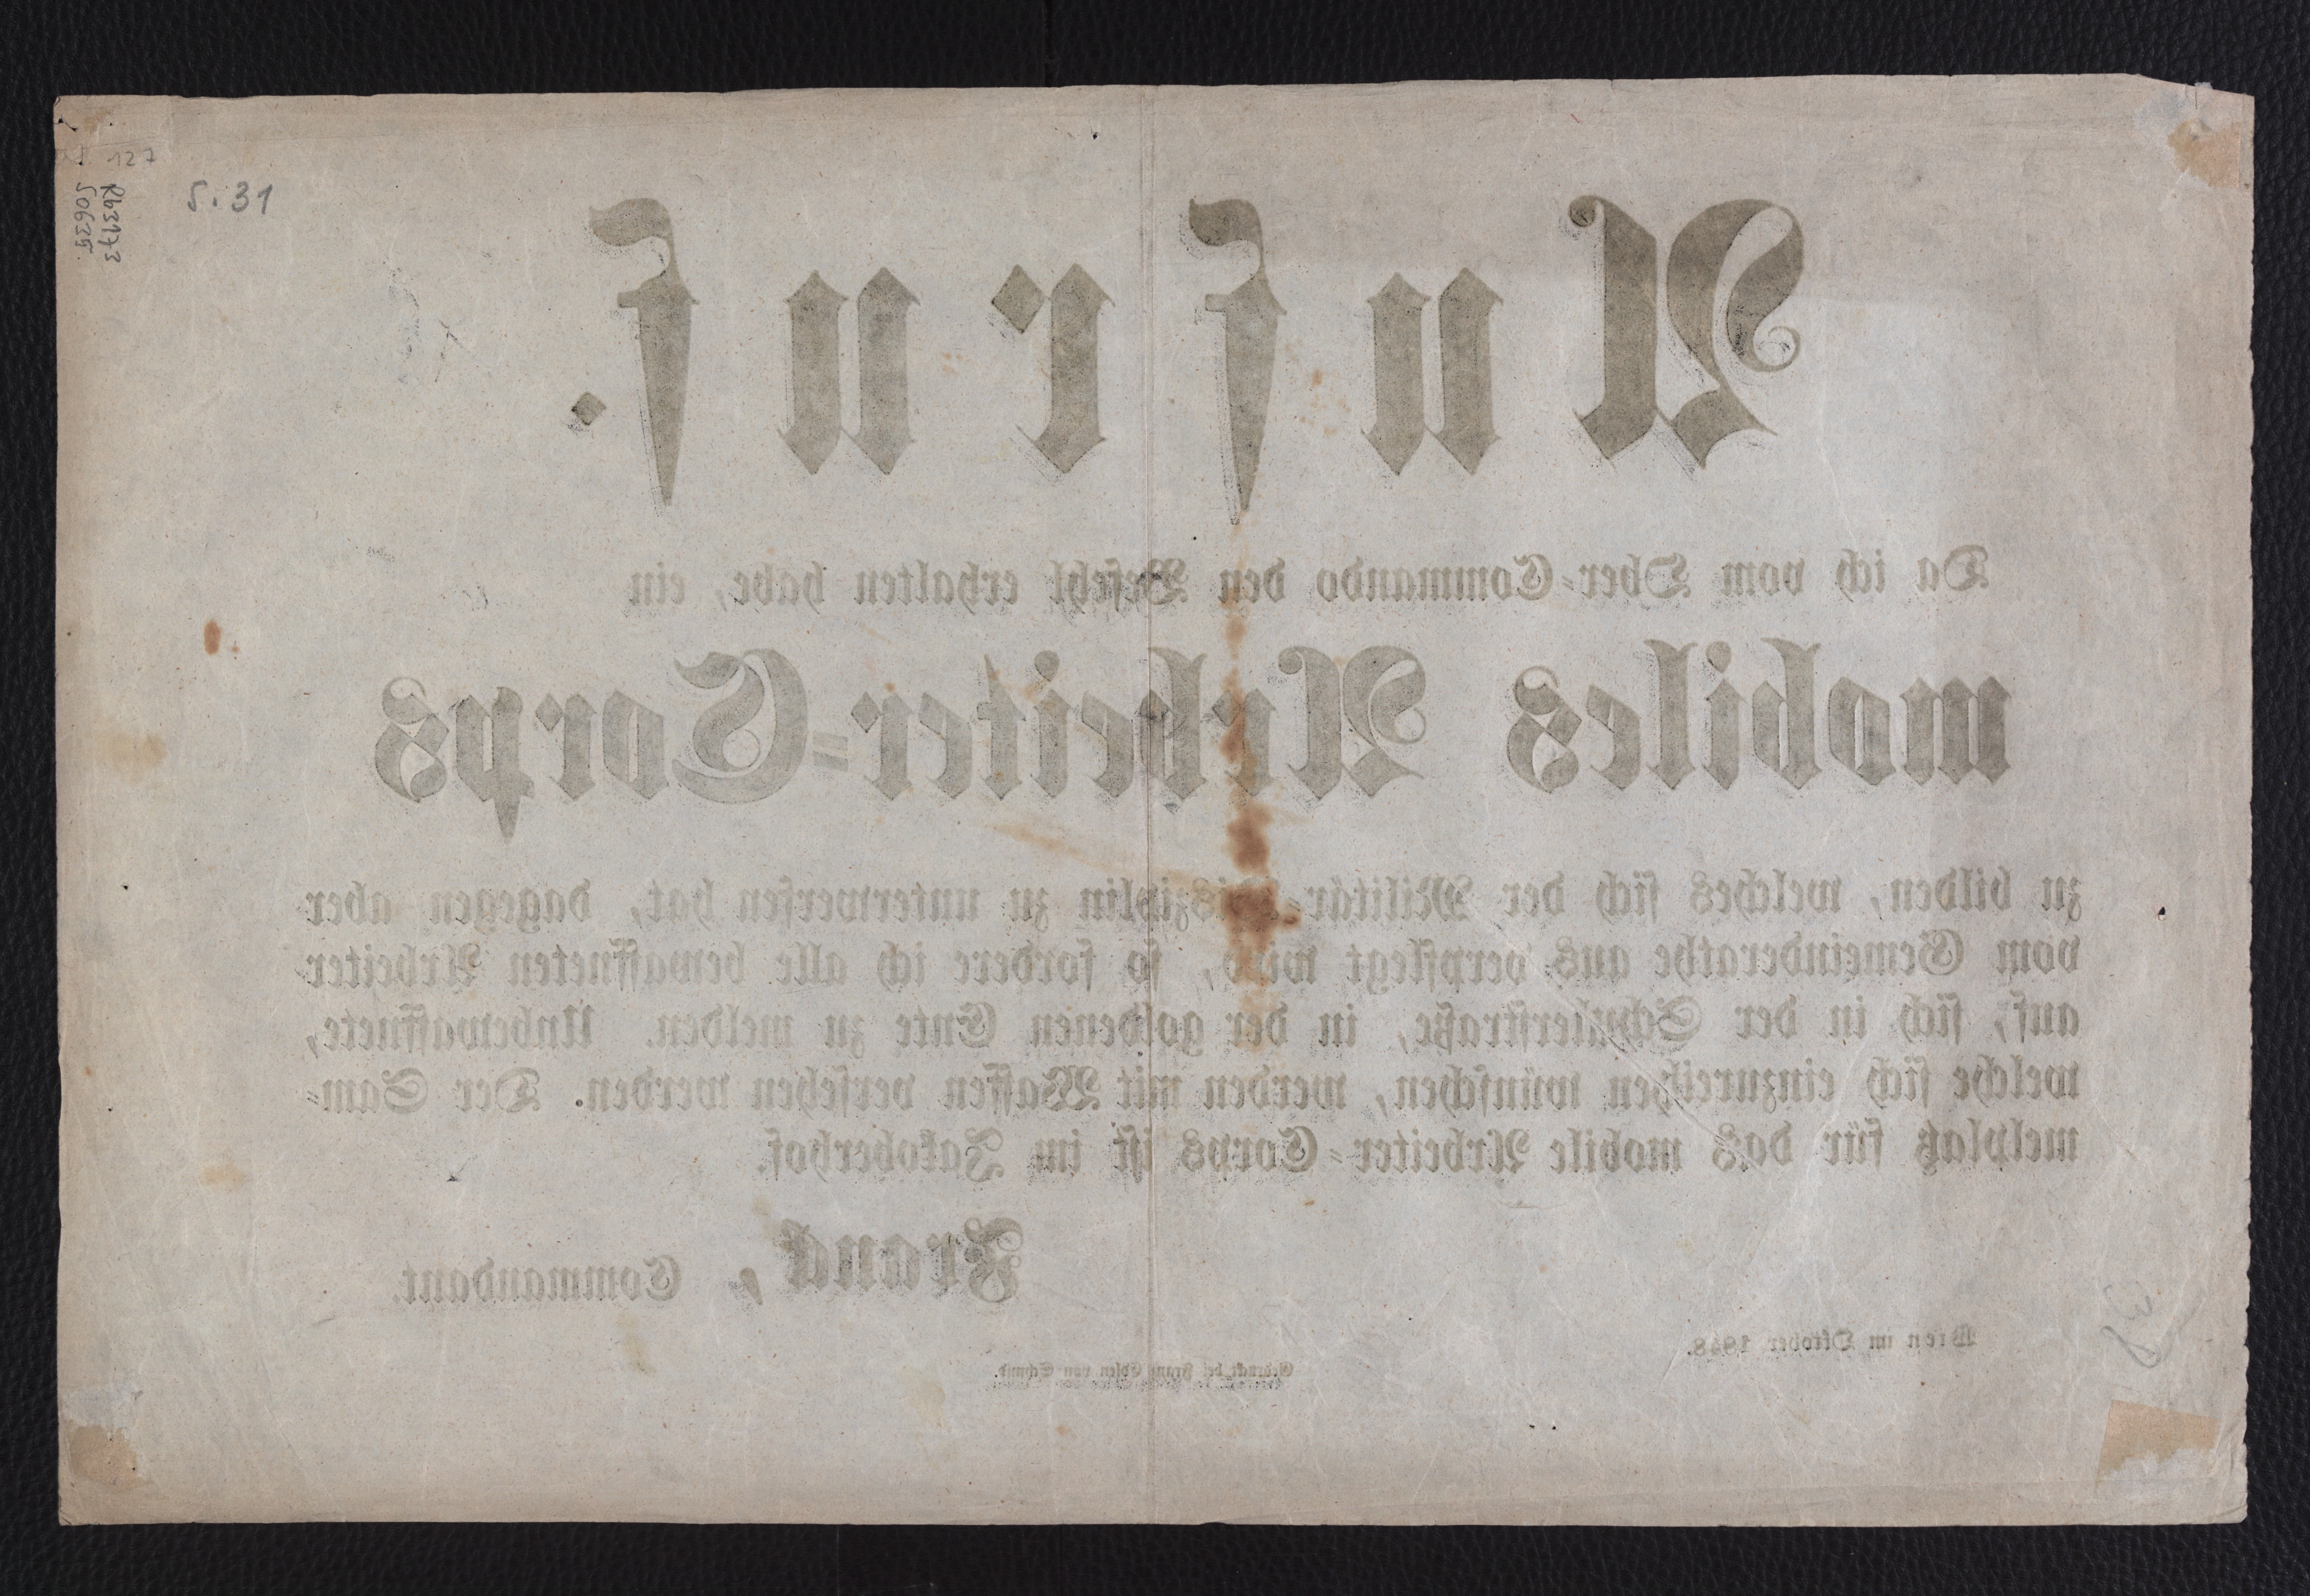 127
S. 31
Aufruf.
Da ich vom Ober-Commando den Befehl erhalten habe, ein
mobiles Arbeiter-Corps
zu bilden, welches sich der Militär-Disziplin zu unterwerfen hat, dagegen aber
vom Gemeinderathe aus verpflegt wird, so fordere ich alle bewaffneten Arbeiter
auf, sich in der Schulerstraße, in der goldenen Ente zu melden. Unbewaffnete,
welche sich einzureihen wünschen, werden mit Waffen versehen werden. Der Sam-
melplatz für das mobile Arbeiter-Corps ist im Jakoberhof.
Frank, Commandant.
Wien im Oktober 1848.
Gedruckt bei Franz Edlen von Schmid.